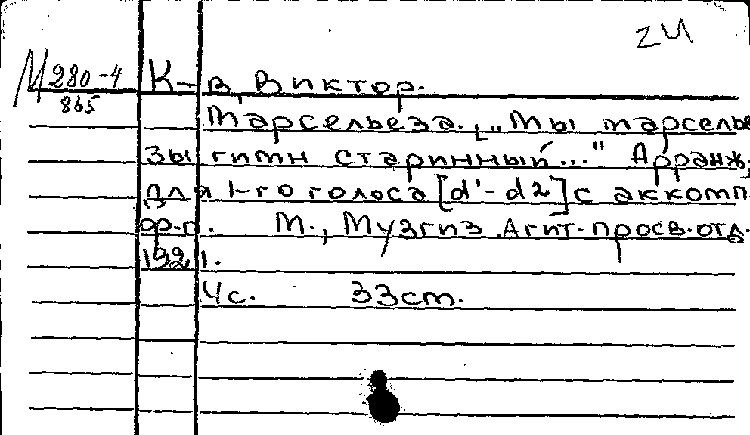 24
М 280-4
865
К-в, Виктор.
Марсельеза. „Мы марселье
зы гимн старинный..." Арранж.
для 1-го голоса [d'-d2] с аккомп
ф-п. М., Музгиз. Агит-просв. отд.
1921.
4с. 33см.